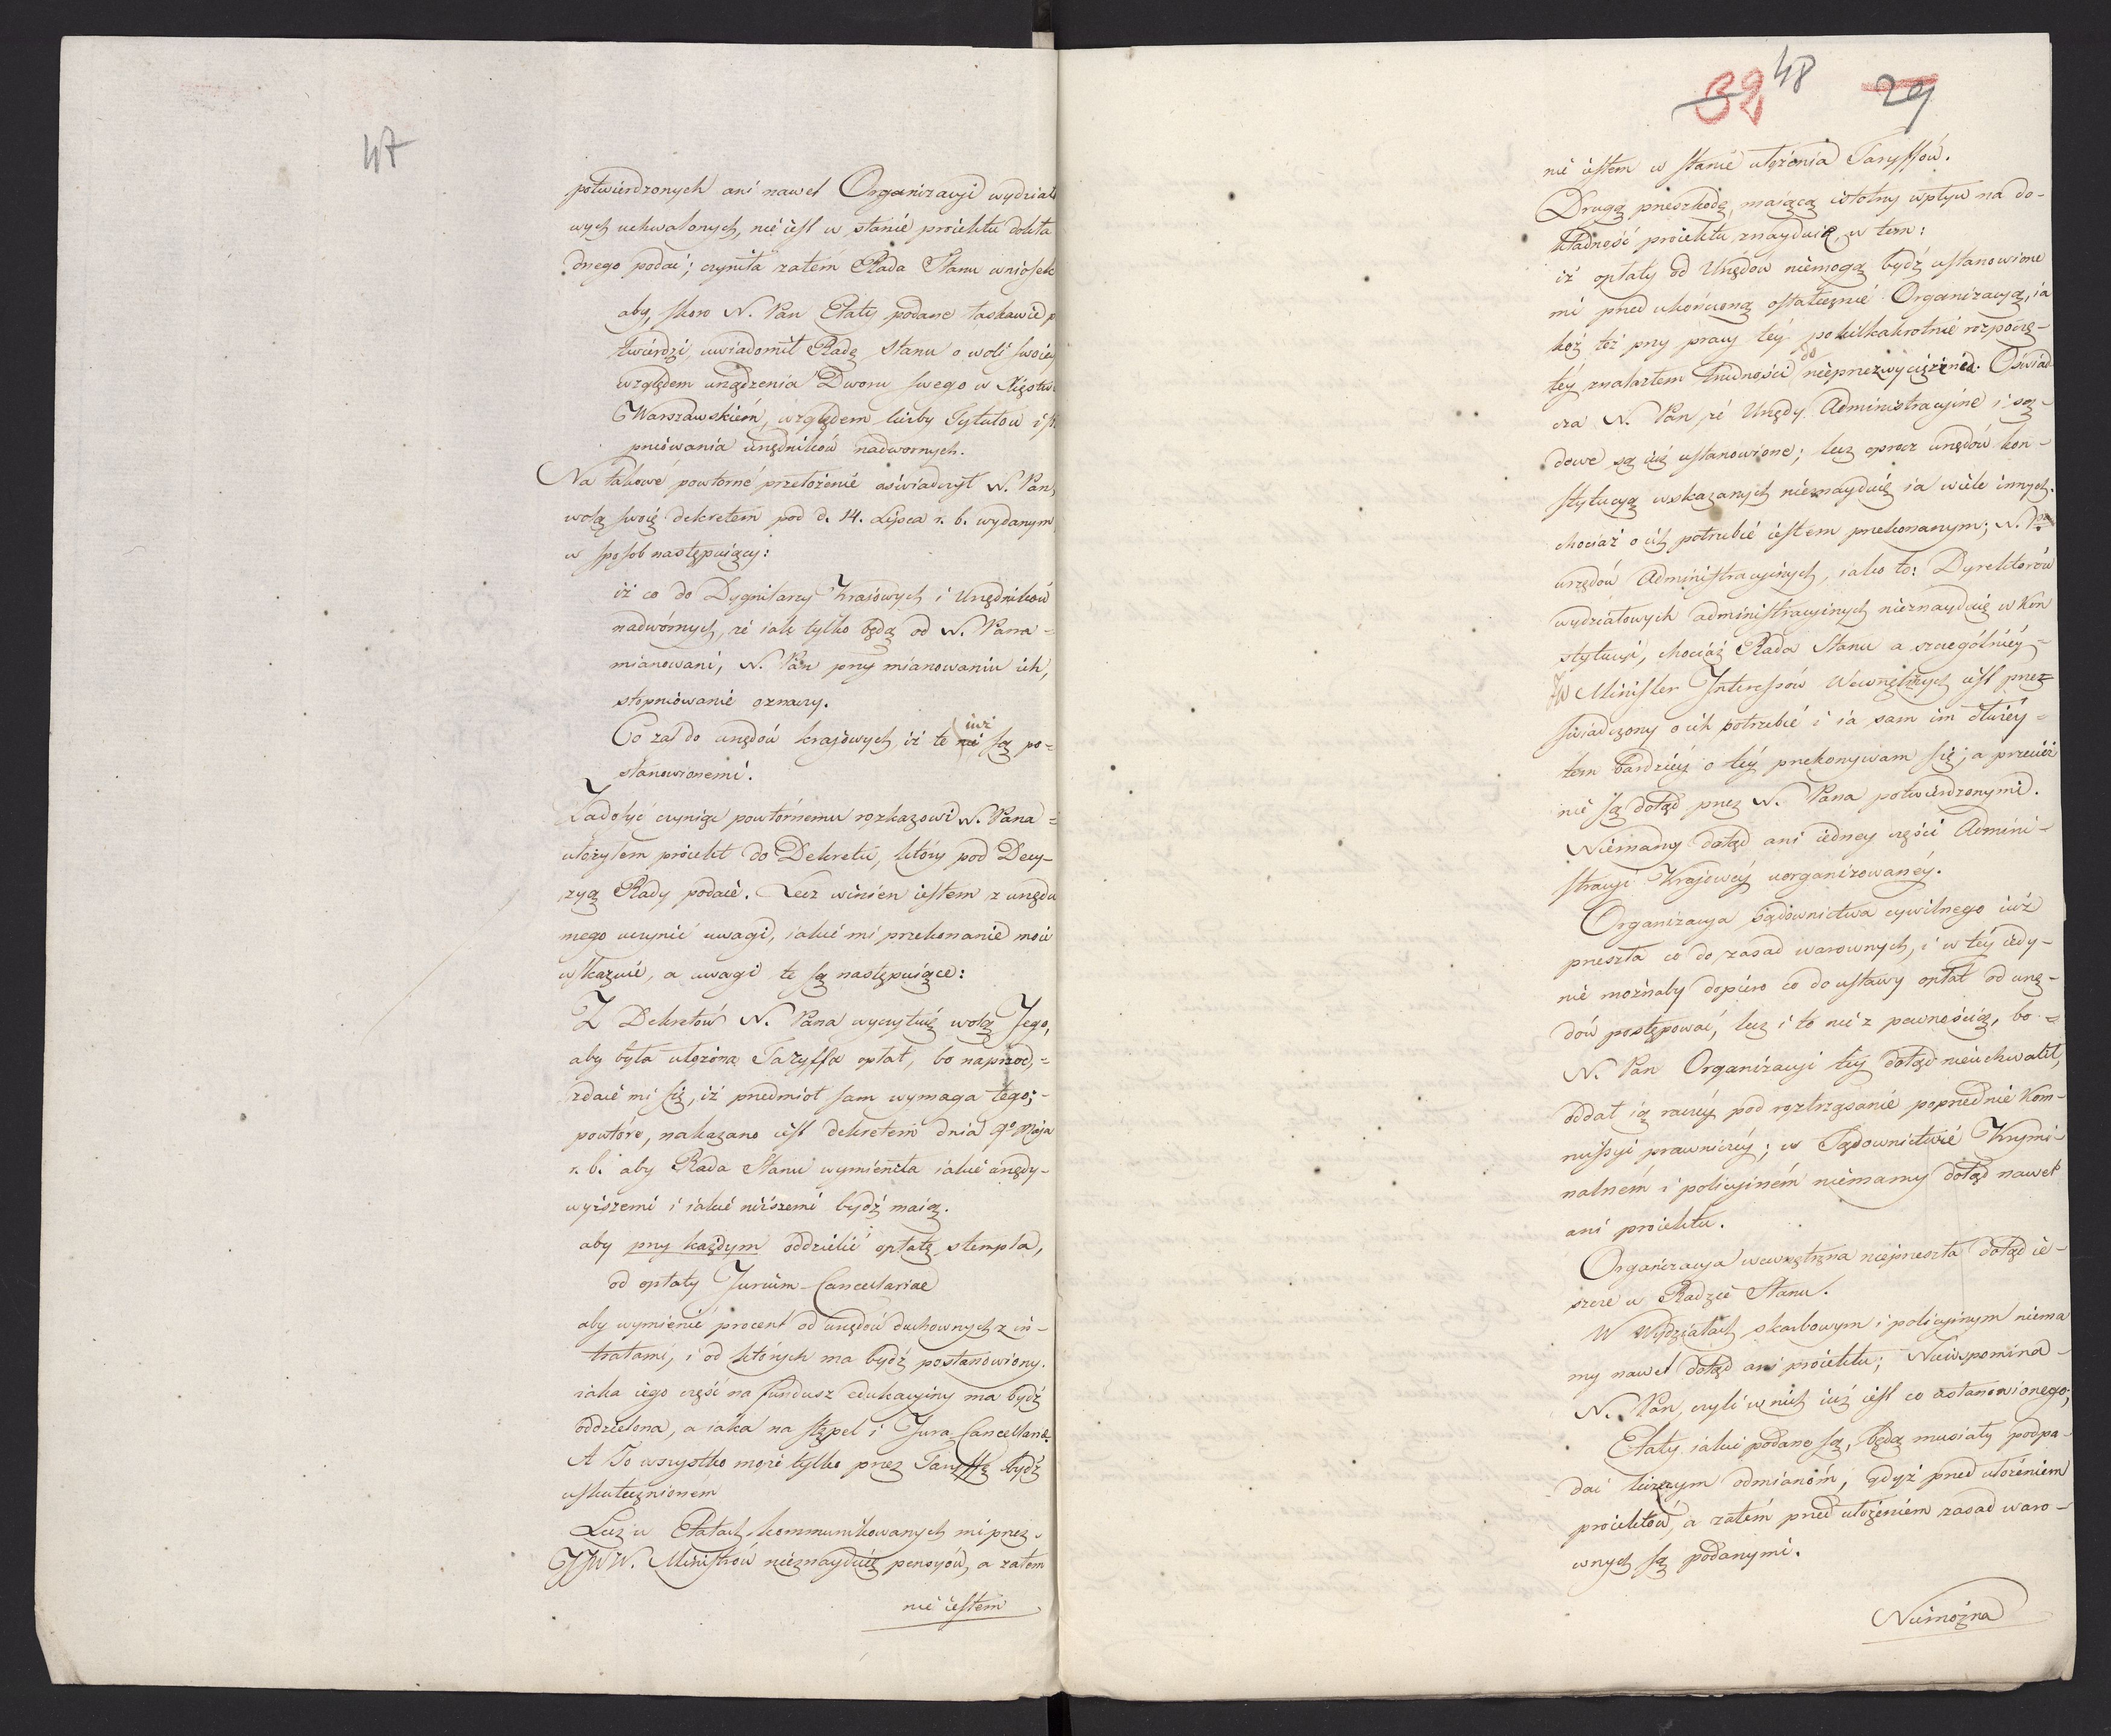 47
potwierdzonych ani nawet Organizacyi wydziało
wych uchwalonych, nie iest w stanie proiektu dokła
dnego podać; czyniła zatém Rada Stanu wniosek
aby, skoro N. Pan Etaty podane łaskawie p
twierdzi, uwiadomił Radę Stanu o woli swoiey
względem urządzenia Dworu swego w Xięstwi
Warszawskiém, względem liczby Tytułow i st
pniówania urzędników nadwornych.
Na takowe powtorné przełożenié oświadczył N. Pan,
wolą swoię dekretem pod d. 14. Lipca r. b. wydanym
w sposob następuiący:
iż co do Dygnitarzy Kraiówych i Urzędników
nadwórnych, że iak tylko będą od N. Pana =
mianowani, N. Pan przy mianowaniu ich,
stopniówanié oznaczy.
Co zaś do urzędów kraiówych iż te nié iuż są po=
stanowionemi.
Zadosyć czyniąc powtórnemu rozkazowi N. Pana =
ułożyłem proiekt do Dekretu, który pod Decy-
zyą Rady podaié. Lecz winien iestem z urzędu
mego uczynić uwagi, iakié mi przekonanié moié
wskazuié, a uwagi te są następuiące:
Z Dekretów N. Pana wyczytuię wolą Jego,
aby była ułożona Taryffa opłat, bo naprzod,=
zdaié mi się, iż przedmiot sam wymaga tego;-
powtóre, nakazano iest dekretem dnia 9º Maja
r. b. aby Rada Stanu wymieniła iakié urzędy-
wyższemi i iakié niższemi bydź maią.
aby przy każdym oddzielić opłatę stempla,
od opłaty Jurium Cancellariae
aby wymienić procent od urzędów duchownych z in-
tratami, i od których ma bydź postanówiony.
iaka iego część na fundusz edukacyiny ma bydź
oddzielona, a iaka na stępel i Jura Cancellariae.
A To wszystko może tylko przez Taryffę bydź
uskutecznioném
Lecz w Etatach kommunikowanych mi przez
JJWW. Ministrów nieznayduię pensyów, a zatém
nié iestem
39 48 29
nié iestem w stanié ułożenia Taryffów.
Drugą przeszkodę, maiącą istotny wpływ na do-
kładność proiektu znayduię w tem:
iż opłaty od Urzędow niemogą bydź ustanowione
mi przed ukończoną ostatecznié Organizacyą, ia
koż też przy pracy tey pokilkakrotnié rozpoczę-
téy znalazłem trudności do nieprzezwyciężenia. Oświad
cza N. Pan, że Urzędy Administracyiné i Są-
dowe są iuż ustanowione; lecz oprocz urzędów kon-
stytucyą wskazanych nieznayduię ia wiele innych.
chociaż o ich potrzebié iestem przekonanym; N. Pn
urzędów Administracyinych, iako to: Dyrektorów
wydziałowych administracyinych nieznayduię w Kon
stytucyi, chociaż Rada Stanu a szczególniéy =
JW Minister Interessów Wewnętrznych iest prze=
świadczony o ich potrzebié i ia sam im dłużéy =
tem bardziéy o téy przekonywam się; a przecież
nié są dotąd przez N. Pana potwierdzonymi.
Niémamy dotąd ani iedney części Admini-
stracyi Krajowéy uorganizowanéy.
Organizacya sądównictwa cywilnego iuż
przeszła co do zasad warownych, i w téy iedy-
nié możnaby dopiéro co do ustawy opłat od urzę-
dów postępować, lecz i to nié z pewnością, bo =
N. Pan Organizacyi téy dotąd nieuchwalił,
oddał ią raczéy pod roztrząsanié poprzednié Kom-
missyi prawniczéy; w Sądownictwié Krymi-
nalném i policyiném niémamy dotąd nawet
ani proiektu.
Organizacya wewnętrzna nieprzeszła dotąd ie-
szcze w Radzié Stanu.
W Wydziałach skarbowym i policyinym niéma
my nawet dotąd ani proiektu; Niéwspomina-
N. Pan, czyli w nich iuż iest co ustanowionego;
Etaty iakié podane są, będą musiały podpa-
dać licznym odmianóm, gdyż przed ułożéniem
proiektów, a zatém przed ułożéniem zasad waro-
wnych są podanymi.
Niémożna